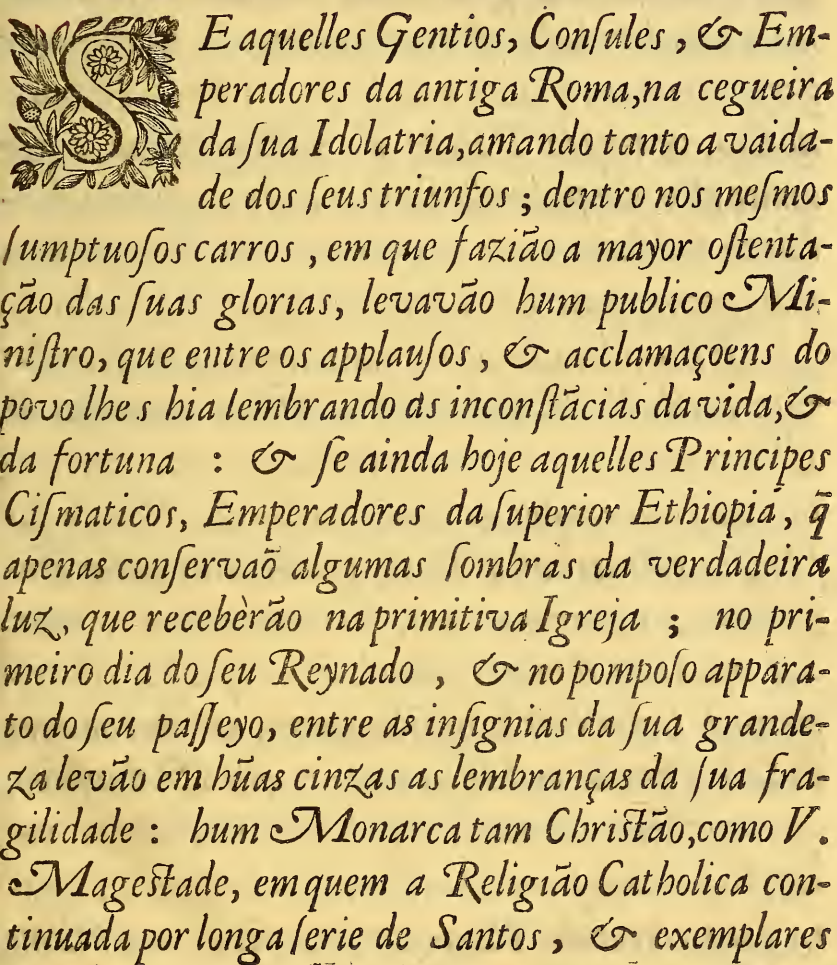 SE aquelles Gentios, Conſules, & Em-
peradores da antiga Roma,na cegueira
da ſua Idolatria,amando tanto a vaida-
de dos ſeus triunfos ; dentro nos meſmos
ſumptuoſos carros , em que fazião a mayor oſtenta-
ção das ſuas glorias, levavão hum publico Mi-
niſtro, que entre os applauſos , & acclamaçoens do
povo lhes hia lembrando as inconſtãcias da vida,&
da fortuna : & ſe ainda hoje aquelles Principes
Ciſmaticos, Emperadores da ſuperior Ethiopia, q̃
apenas conſervaõ algumas ſombras da verdadeira
luz, que recebèrão na primitiva Igreja ; no pri-
meiro dia do ſeu Reynado , & no pompoſo appara-
to do ſeu paſſeyo, entre as inſignias da ſua grande-
za levão em hũas cinzas as lembranças da ſua fra-
gilidade : hum Monarca tam Chriſtão,como V.
Mageſtade, em quem a Religião Catholica con-
tinuada por longa ſerie de Santos , & exemplares